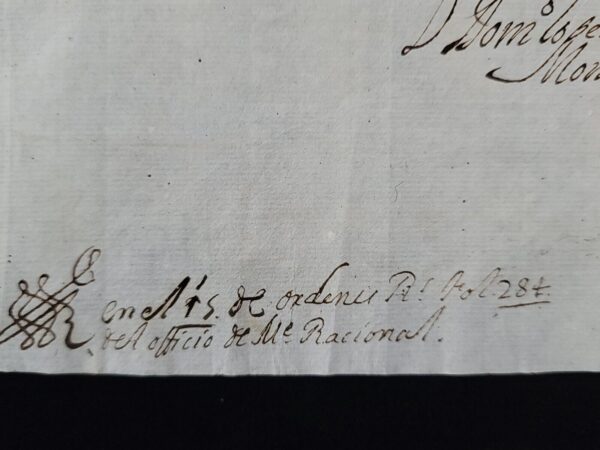 D Domº lope
Mon
R en el 15. de ordenes Rˢ fol 284.
del officio de Mᵉ Racional.